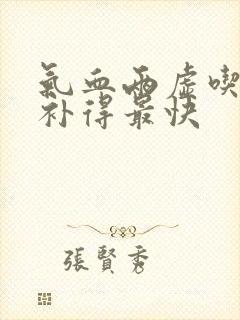 氣血兩虛喫
补得最快
張賢秀